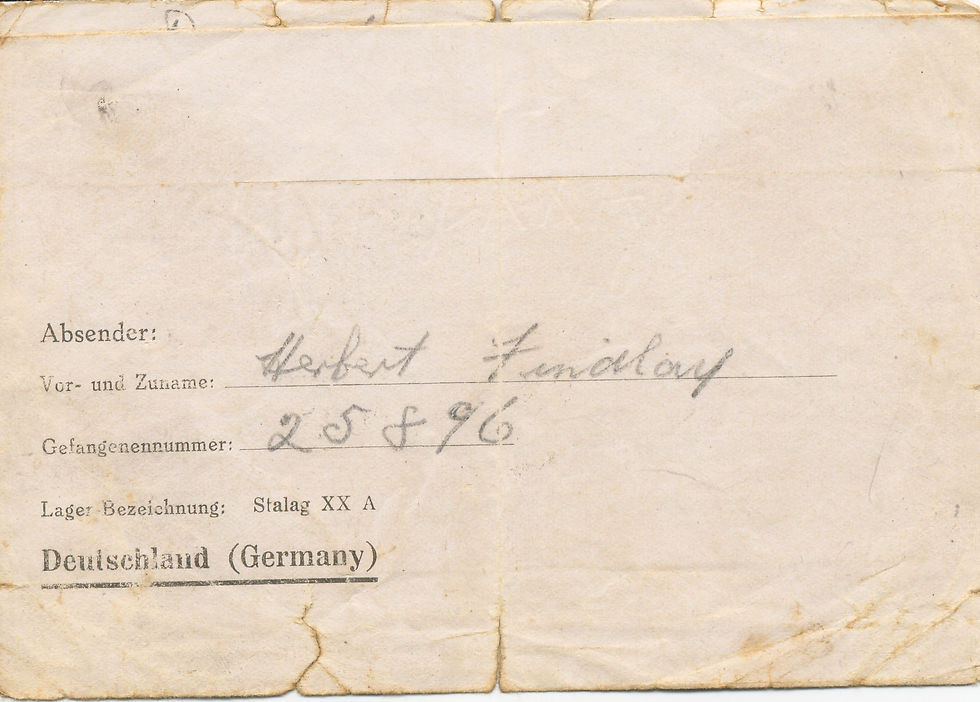 Absender:
Vor- und Zuname: Herbert Findlay
Gefangenennummer: 25896
Lager-Bezeichnung: Stalag XX A
Deutschland (Germany)